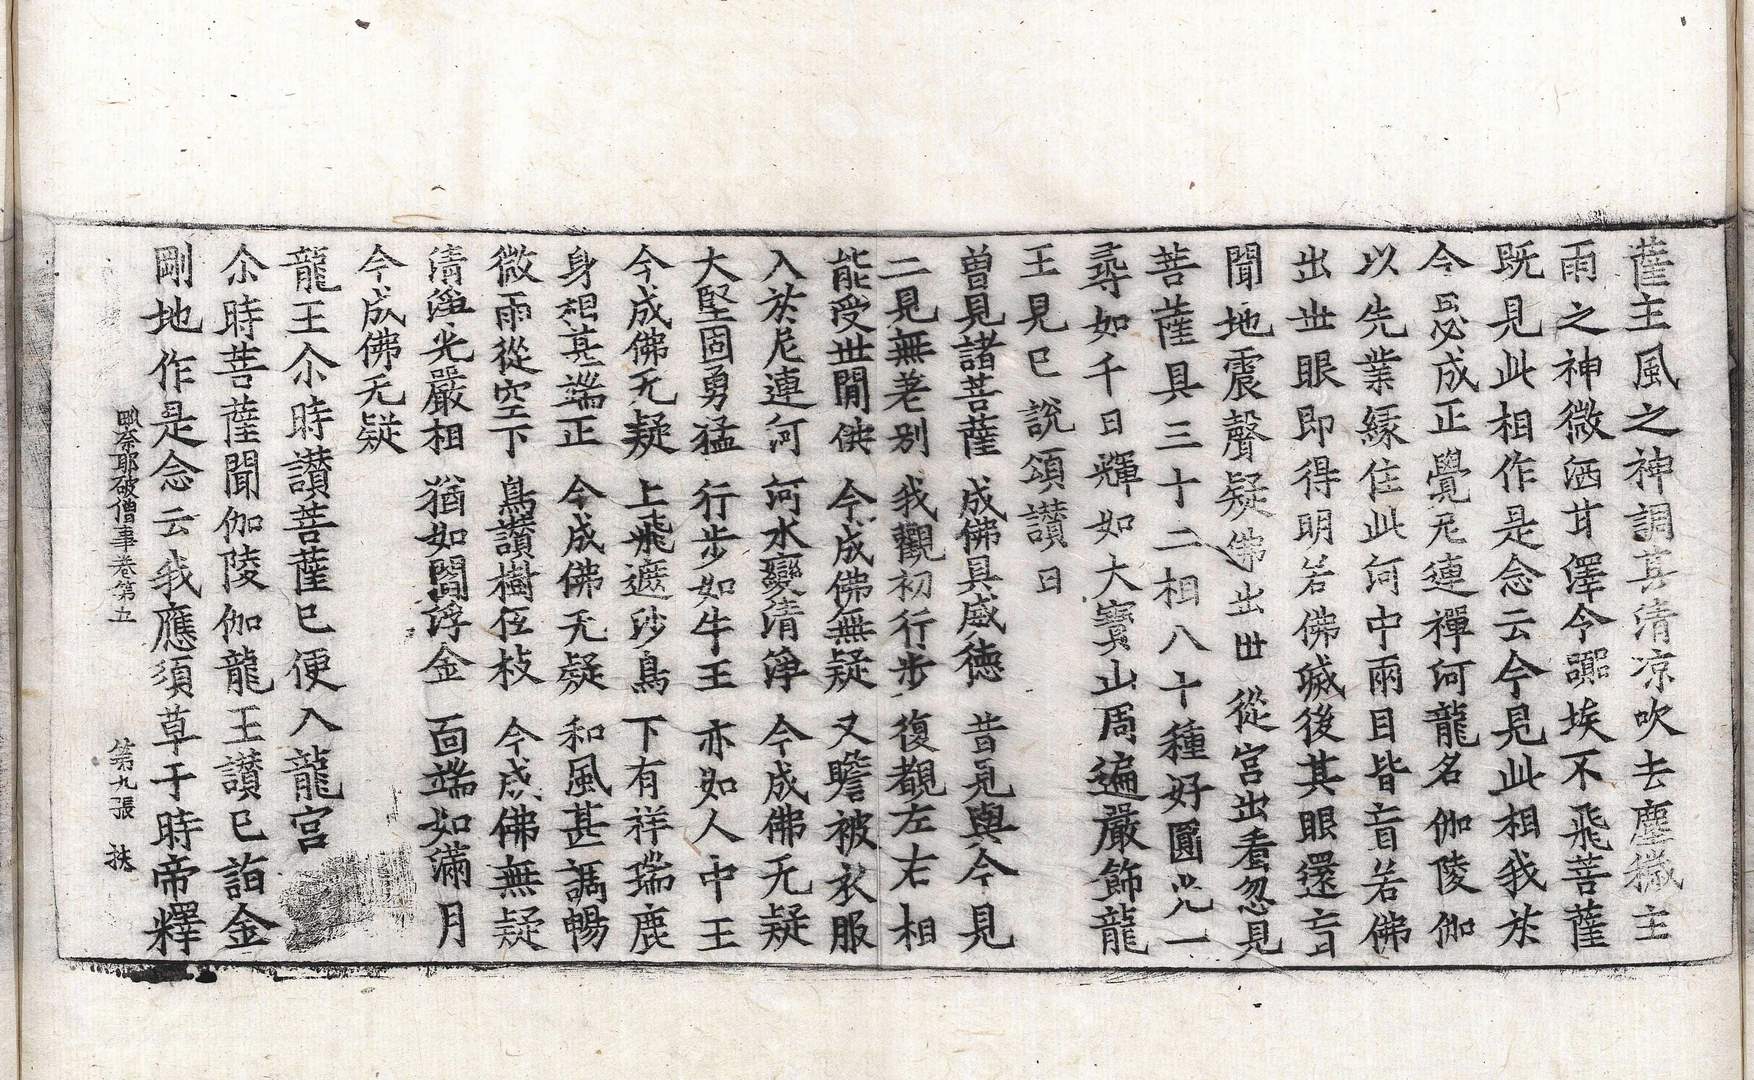 薩主風之神調善清凉吹去塵穢主
雨之神微洒甘澤令䁱埃不飛菩薩
既見此相作是念云今見此相我於
今㝎必成正覺尼連禪河龍名伽陵伽
以先業縁住此河中兩目皆盲若佛
出世眼即得明若佛滅後其眼還盲
聞地震聲疑佛出世從宮出看忽見
菩薩具三十二相八十種好圓光一
尋如千日輝如大寶山周遍嚴飾龍
王見已說頌讃曰
曽見諸菩薩　成佛具威德　昔見與今見
二見無差別　我觀初行步　復觀左右相
能受世間供　今成佛無疑　又瞻被衣服
入於尼連河　河水變清淨　今成佛无疑
大堅固勇猛　行步如牛王　亦如人中王
今成佛无疑　上飛遮沙鳥　下有祥瑞鹿
身相甚端正　今成佛无疑　和風甚調暢
微雨從空下　鳥讃樹伍枝　今成佛無疑
清淨光嚴相　猶如閻浮金　面端如滿月
今成佛无疑
龍王尒時讃菩薩已便入龍宮
尒時菩薩聞伽陵伽龍王讃已詣金
剛地作是念云我應須草于時帝釋
毗奈耶破僧事卷第五　第九張　扶